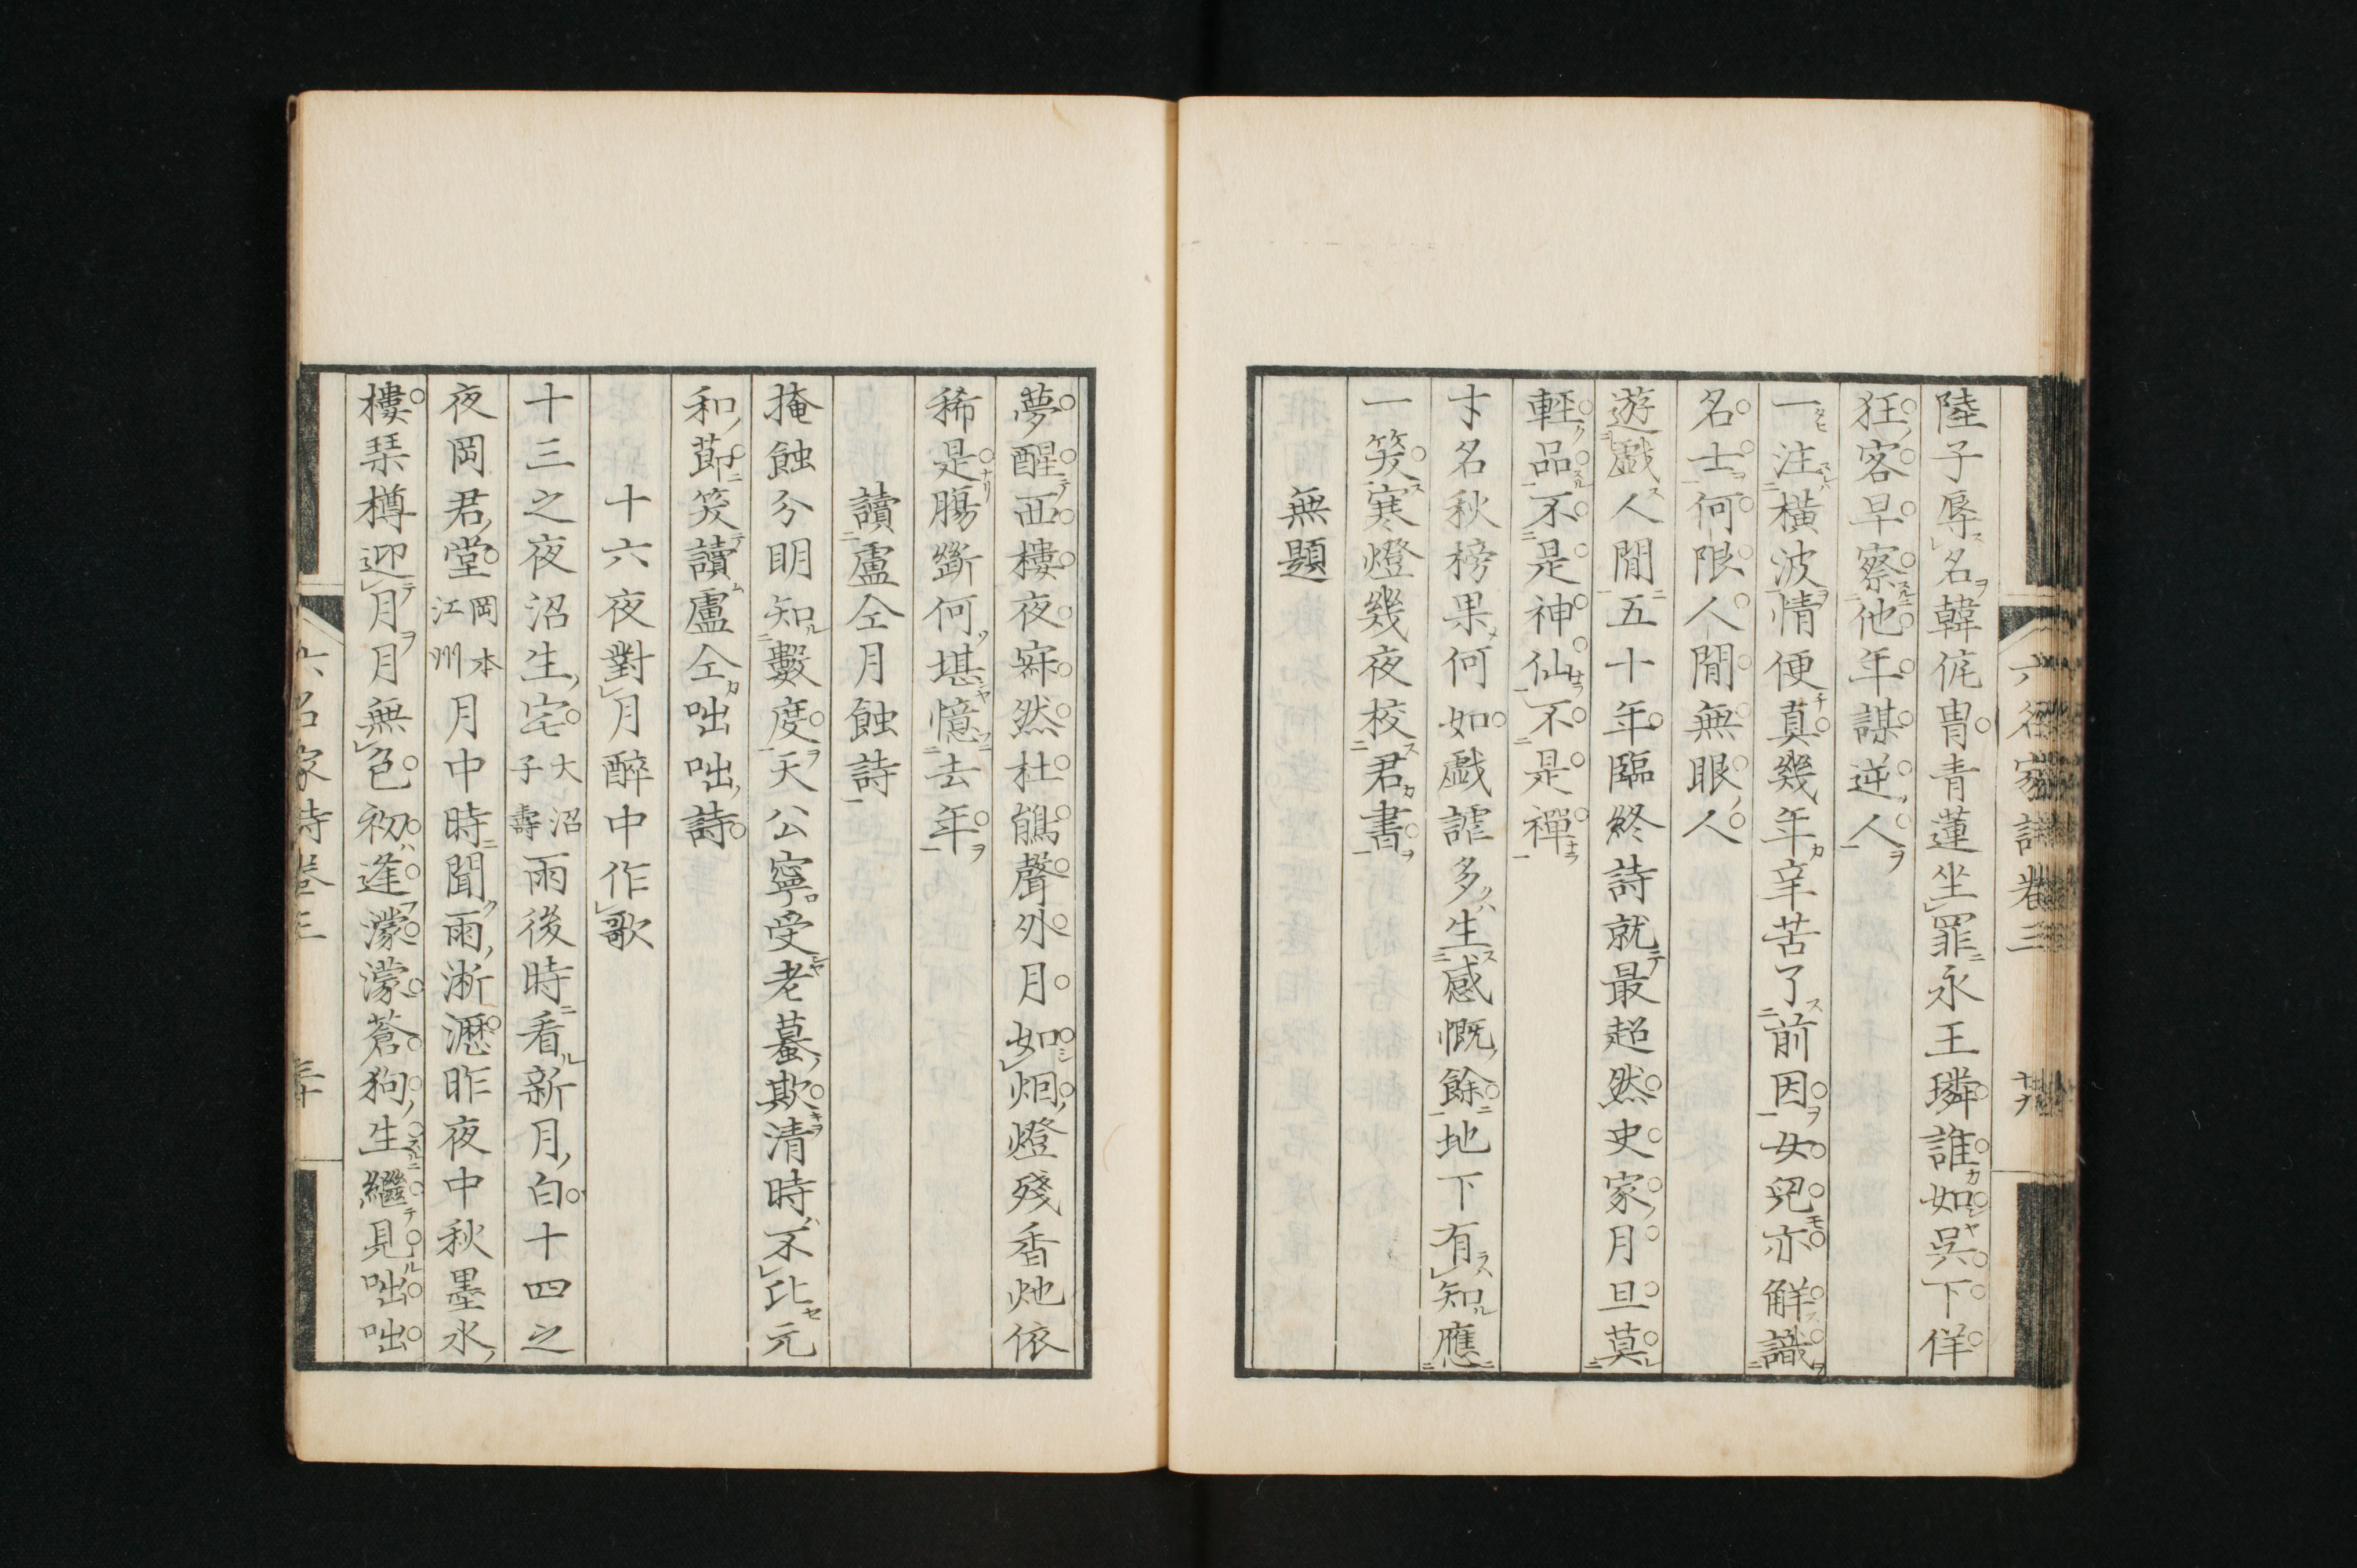 六名家詩卷三
陸子辱名韓侂冑青蓮坐罪永王璘誰如吳下佯
狂客早察他年謀逆人
一注橫波情便真幾年辛苦了前因女兒亦解識
名士何限人間無眼人
遊戲人間五十年臨終詩就最超然史家月旦莫
輕品不是神仙不是禪
才名秋榜果何如戲謔多生感慨餘地下有知應
一笑寒燈幾夜校君書
無題
夢醒西樓夜寂然杜鵑聲外月如烟燈殘香灺依
稀是腸斷何堪憶去年
讀盧仝月蝕詩
掩蝕分明知數度天公寧受老蟇欺清時不比元
和節笑讀盧仝咄咄詩
十六夜對月醉中作歌
十三之夜沼生宅大沼子壽雨後時看新月白十四之
夜岡君堂岡本江州月中時聞雨淅瀝昨夜中秋墨水
樓琹樽迎月月無色初逢濛濛蒼狗生繼見咄咄
六名家詩卷三